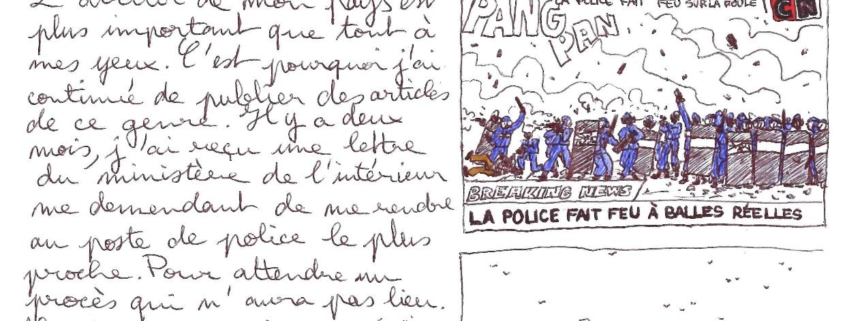 de mon pays est
plus important que tout à
mes yeux. C'est pourquoi j'ai
continué de publier des articles
de ce genre. Il y a deux
mois, j'ai reçu une lettre
du ministère de l'intérieur
me demendant de me rendre
au poste de police le plus
proche. Pour attendre un
procès qui n'aura pas lieu.
PANG
PAN
LA POLICE FAIT FEU SUR LA FOULE
CN
BREAKING NEWS
LA POLICE FAIT FEU À BALLES RÉELLES